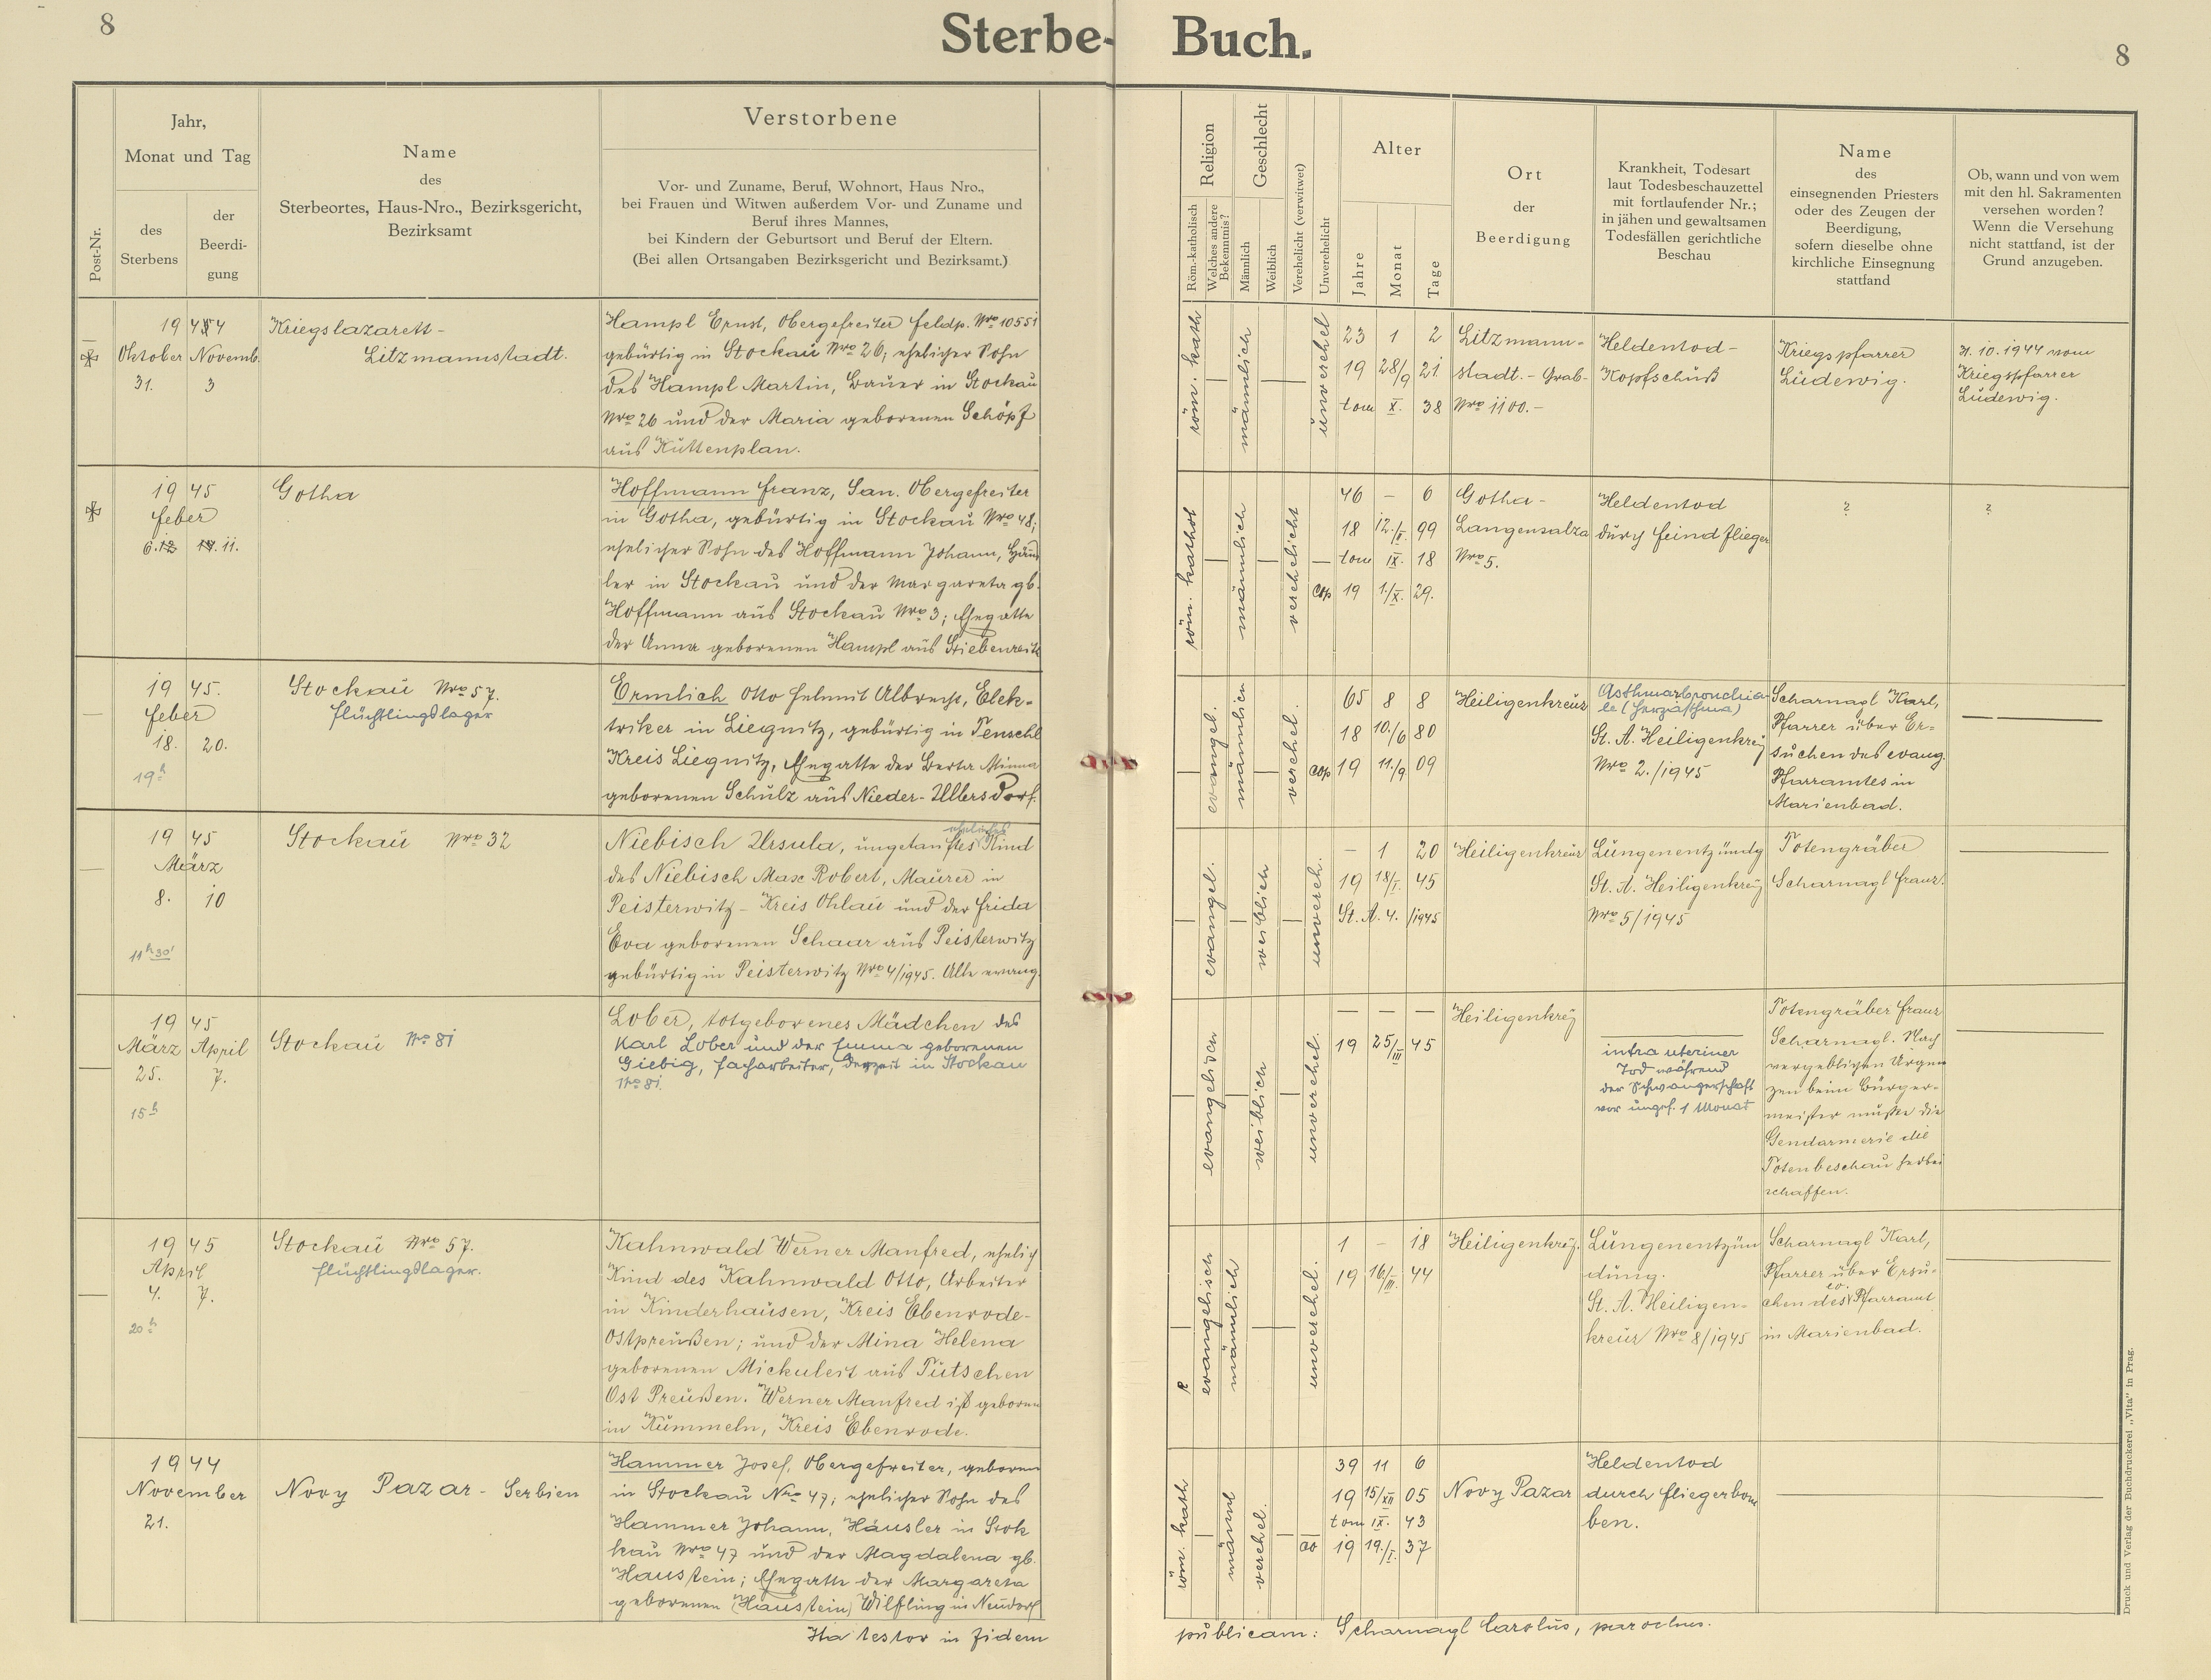 8
Sterbe-Buch.
8
Post-Nr.
Jahr,
Monat und Tag
des
Sterbens
der
Beerdi-
gung
Name
des
Sterbeortes, Haus-Nro., Bezirksgericht,
Bezirksamt
Verstorbene
Vor- und Zuname, Beruf, Wohnort, Haus Nro.,
bei Frauen und Witwen außerdem Vor- und Zuname und
Beruf ihres Mannes,
bei Kindern der Geburtsort und Beruf der Eltern.
(Bei allen Ortsangaben Bezirksgericht und Bezirksamt.)
Religion
Röm.-katholisch
Welches andere
Bekenntnis?
Geschlecht
Männlich
Weiblich
Verehelicht (verwitwet)
Unverehelicht
Alter
Jahre
Monat
Tage
Ort
der
Beerdigung
Krankheit, Todesart
laut Todesbeschauzettel
mit fortlaufender Nr.;
in jähen und gewaltsamen
Todesfällen gerichtliche
Beschau
Name
des
einsegnenden Priesters
oder des Zeugen der
Beerdigung,
sofern dieselbe ohne
kirchliche Einsegnung
stattfand
Ob, wann und von wem
mit den hl. Sakramenten
versehen worden?
Wenn die Versehung
nicht stattfand, ist der
Grund anzugeben.
1944
Oktober Novemb.
31. 3
Kriegslazarett-
Litzmannstadt.
Hampl Ernst, Obergefreiter Feldp. Nro 10551
gebürtig in Stockau Nro 26, ehelicher Sohn
des Hampl Martin, Bauer in Stockau
Nro 26 und der Maria geborenen Schöpf
aus Kuttenplan.
röm. kath
männlich
unverehel
23 1 2
19 28/9 21
tom X. 38
Litzmann-
stadt.- Grab-
Nro 1100.-
Heldentod-
Kopfschuß
Kriegspfarrer
Ludewig.
31.10.1944 vom
Kriegspfarrer
Ludewig.
19 45
Feber
6. 11.
Gotha
Hoffmann Franz, San. Obergefreiter
in Gotha, gebürtig in Stockau Nro 48;
ehelicher Sohn des Hoffmann Johann, Häus
ler in Stockau und der Margareta gb.
Hoffmann aus Stockau Nro 3; Ehegatte
der Anna geborenen Hampl aus
röm. kathol
männlich
verehelicht
46 — 6
18 12./ 99
tom IX. 18
cop 19 1./X. 29.
Gotha-
Langensalza
Nro 5.
Heldentod
durch Feindflieger
?
?
19 45.
Feber
18. 20.
19h
Stockau Nro 57.
Flüchtlingslager
Ermlich Otto Helmut Albrecht, Elek-
triker in Liegnitz, gebürtig in Tenschel
Kreis Liegnitz, Ehegatte der Berta Minna
geborenen Schulz aus Nieder-Ullersdorf.
evangel.
männlich
verehel.
65 8 8
18 10./6 80
cop 19 11./9 09
Heiligenkreuz
Asthmabronchia-
le (Herzasthma)
St. A. Heiligenkreuz
Nro 2./1945
Scharnagl Karl,
Pfarrer über Er-
suchen des evang.
Pfarramtes in
Marienbad.
19 45
März
8. 10
11h 30'
Stockau Nro 32
eheliches
Niebisch Ursula, ungetauftes Kind
des Niebisch Max Robert, Maurer in
Peisterwitz - Kreis Ohlau und der Frida
Eva geborenen Schaar aus Peisterwitz
gebürtig in Peisterwitz Nro 4/1945. Alle evang.
evangel.
weiblich
unvereh.
— 1 20
19 18/I. 45
St. A. 4. /1945
Heiligenkreuz
Lungenentzündg
St. A. Heiligenkreuz
Nro 5/1945
Totengräber
Scharnagl Franz.
19 45
März April
25. 7.
15h
Stockau Nro 81
Lober, totgeborenes Mädchen des
Karl Lober und der Emma geborenen
Giebig, Facharbeiter, derzeit in Stockau
Nro 81.
evangelisch
weiblich
unverehel.
— — —
19 25/III 45
Heiligenkrez
intra uteriner
Tod während
der Schwangerschaft
vor ungef. 1 Monat
Totengräber Franz
Scharnagl. Nach
vergeblichen Urgen
zen beim Bürger-
meister mußte die
Gendarmerie die
Totenbeschau herbei
schaffen.
19 45
April
4. 7.
20h
Stockau Nro 57.
Flüchtlingslager.
Kahnwald Werner Manfred, ehelich
Kind des Kahnwald Otto, Arbeiter
in Kinderhausen, Kreis Ebenrode-
Ostpreußen; und der Mina Helena
geborenen Mickuleit aus Tutschen
Ost Preußen. Werner Manfred ist geboren
in Kummeln, Kreis Ebenrode.
evangelisch
männlich
unverehel.
1 - 18
19 16/III. 44
Heiligenkrez.
Lungenentzün
dung.
St. A. Heiligen-
kreuz Nro 8/1945
Scharnagl Karl,
Pfarrer über Ersu-
chen des ev. Pfarramt
in Marienbad.
1944
November
21.
Novy Pazar - Serbien
Hammer Josef, Obergefreiter, geboren
in Stockau Nro 47; ehelicher Sohn des
Hammer Johann, Häusler in Stok
kau Nro 47 und der Magdalena gb.
Haustein; Ehegatte der Margareta
geborenen (Haustein) Wilfling in Neudorf
röm. kath
männl
verehel.
39 11 6
19 15/XII 05
tom IX. 43
oo 19 19./I. 37
Novy Pazar
Heldentod
durch Fliegerbom
ben.
Ita testor in fidem publicam: Scharnagl Carolus, parochus.
Druck und Verlag der Buchdruckerei „Vita" in Prag.